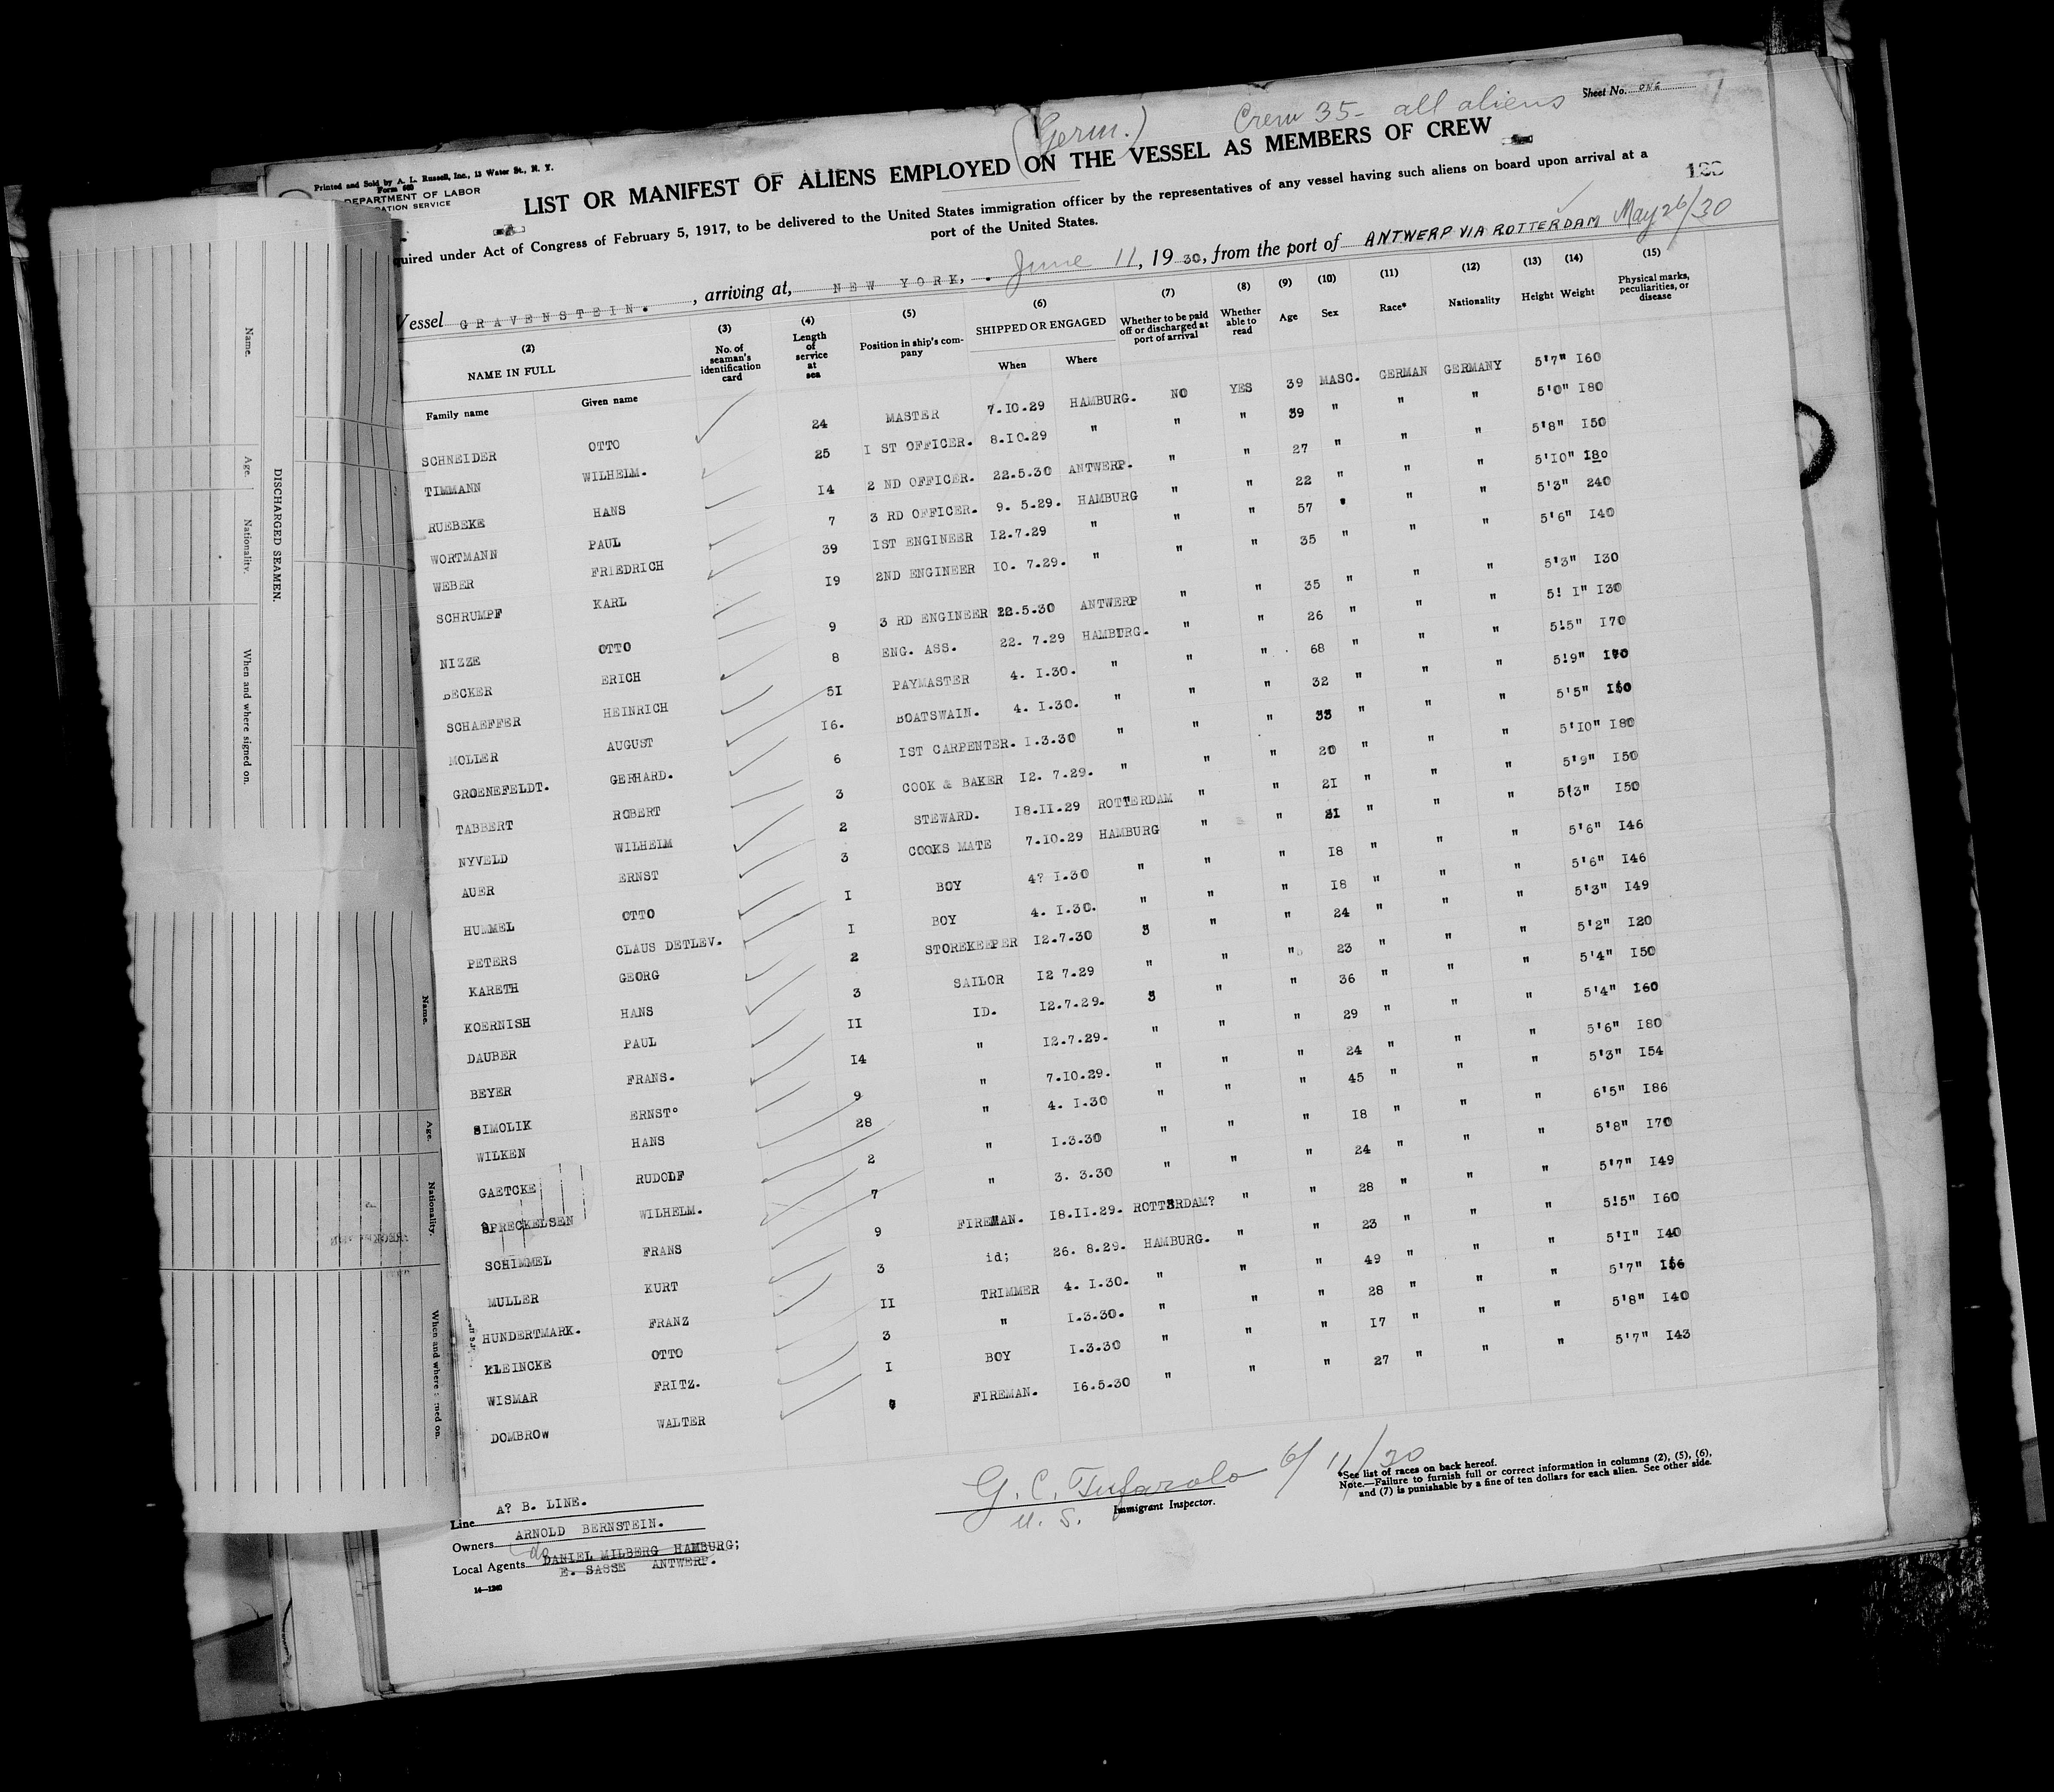 (Germ.) Crew 35- all aliens Sheet No. ONE
Printed and Sold by A. L. Russell, Inc., 13 Water St., N. Y.
Form 680
DEPARTMENT OF LABOR
LIST OR MANIFEST OF ALIENS EMPLOYED ON THE VESSEL AS MEMBERS OF CREW
quired under Act of Congress of February 5, 1917, to be delivered to the United States immigration officer by the representatives of any vessel having such aliens on board upon arrival at a
port of the United States.
Vessel GRAVENSTEIN. , arriving at, NEW YORK, June 11, 19 30, from the port of ANTWERP VIA ROTTERDAM May 26/30
(2) (3) (4) (5) (6) (7) (8) (9) (10) (11) (12) (13) (14) (15)
NAME IN FULL No. of seaman's identification card Length of service at sea Position in ship's company SHIPPED OR ENGAGED Whether to be paid off or discharged at port of arrival Whether able to read Age Sex Race* Nationality Height Weight Physical marks, peculiarities, or disease
Family name Given name When Where
SCHNEIDER OTTO 24 MASTER 7.10.29 HAMBURG. NO YES 39 MASC. GERMAN GERMANY 5'7" I60
TIMMANN WILHELM. 25 I ST OFFICER. 8.10.29 " " " 39 " " " 5'0" I80
RUEBEKE HANS I4 2 ND OFFICER. 22.5.30 ANTWERP. " " 27 " " " 5'8" I50
WORTMANN PAUL 7 3 RD OFFICER. 9. 5.29. HAMBURG " " 22 " " " 5'10" I80
WEBER FRIEDRICH 39 IST ENGINEER I2.7.29 " " " 57 " " " 5'3" 240
SCHRUMPF KARL I9 2ND ENGINEER IO. 7.29. " " " 35 " " " 5'6" I40
NIZZE OTTO 9 3 RD ENGINEER 22.5.30 ANTWERP " " 35 " " " 5'3" I30
BECKER ERICH 8 ENG. ASS. 22. 7.29 HAMBURG. " " 26 " " " 5! I" I30
SCHAEFFER HEINRICH 5I PAYMASTER 4. I.30. " " " 68 " " " 5!5" I70
MOLLER AUGUST I6. BOATSWAIN. 4. I.30. " " " 32 " " " 5!9"
GROENEFELDT. GERHARD. 6 IST CARPENTER. I.3.30 " " " 33 " " " 5'5"
TABBERT ROBERT 3 COOK & BAKER I2. 7.29. " " " 20 " " " 5'10" I80
NYVELD WILHELM 2 STEWARD. I8.II.29 ROTTERDAM " " 2I " " " 5'9" I50
AUER ERNST 3 COOKS MATE 7.10.29 HAMBURG " " " " " 5(3" I50
HUMMEL OTTO I BOY 4? I.30 " " " I8 " " " 5'6" I46
PETERS CLAUS DETLEV. I BOY 4. I.30. " " " I8 " " " 5'6" I46
KARETH GEORG 2 STOREKEEPER I2.7.30 " " 24 " " " 5'3" I49
KOERNISH HANS 3 SAILOR I2 7.29 " " " 23 " " " 5'2" I20
DAUBER PAUL II ID. I2.7.29. " " 36 " " " 5'4" I50
BEYER FRANS. I4 " I2.7.29. " " " 29 " " " 5'4" I60
SIMOLIK ERNST° 9 " 7.10.29. " " " 24 " " " 5'6" I80
WILKEN HANS 28 " 4. I.30 " " " 45 " " " 5'3" I54
GAETCKE RUDOLF 2 " I.3.30 " " " I8 " " " 6'5" I86
SPRECKELSEN WILHELM. 7 " 3. 3.30 " " " 24 " " " 5'8" I70
SCHIMMEL FRANS 9 FIREMAN. I8.II.29. ROTTERDAM? " " 28 " " " 5'7" I49
MULLER KURT 3 id; 26. 8.29. HAMBURG. " " 23 " " " 5!5" I60
HUNDERTMARK. FRANZ II TRIMMER 4. I.30. " " " 49 " " " 5'I" I40
KLEINCKE OTTO 3 " I.3.30. " " " 28 " " " 5'7" I56
WISMAR FRITZ. I BOY I.3.30 " " " I7 " " " 5'8" I40
DOMBROW WALTER FIREMAN. I6.5.30 " " " 27 " " " 5'7" I43
Line A? B. LINE.
Owners ARNOLD BERNSTEIN.
Local Agents do DANIEL MILBERG HAMBURG;
E. SASSE ANTWERP.
14—1240
6/11/30
U. S. Immigrant Inspector.
*See list of races on back hereof.
Note.—Failure to furnish full or correct information in columns (2), (5), (6),
and (7) is punishable by a fine of ten dollars for each alien. See other side.
DISCHARGED SEAMEN.
Name.
Age.
Nationality.
When and where signed on.
Name.
Age.
Nationality.